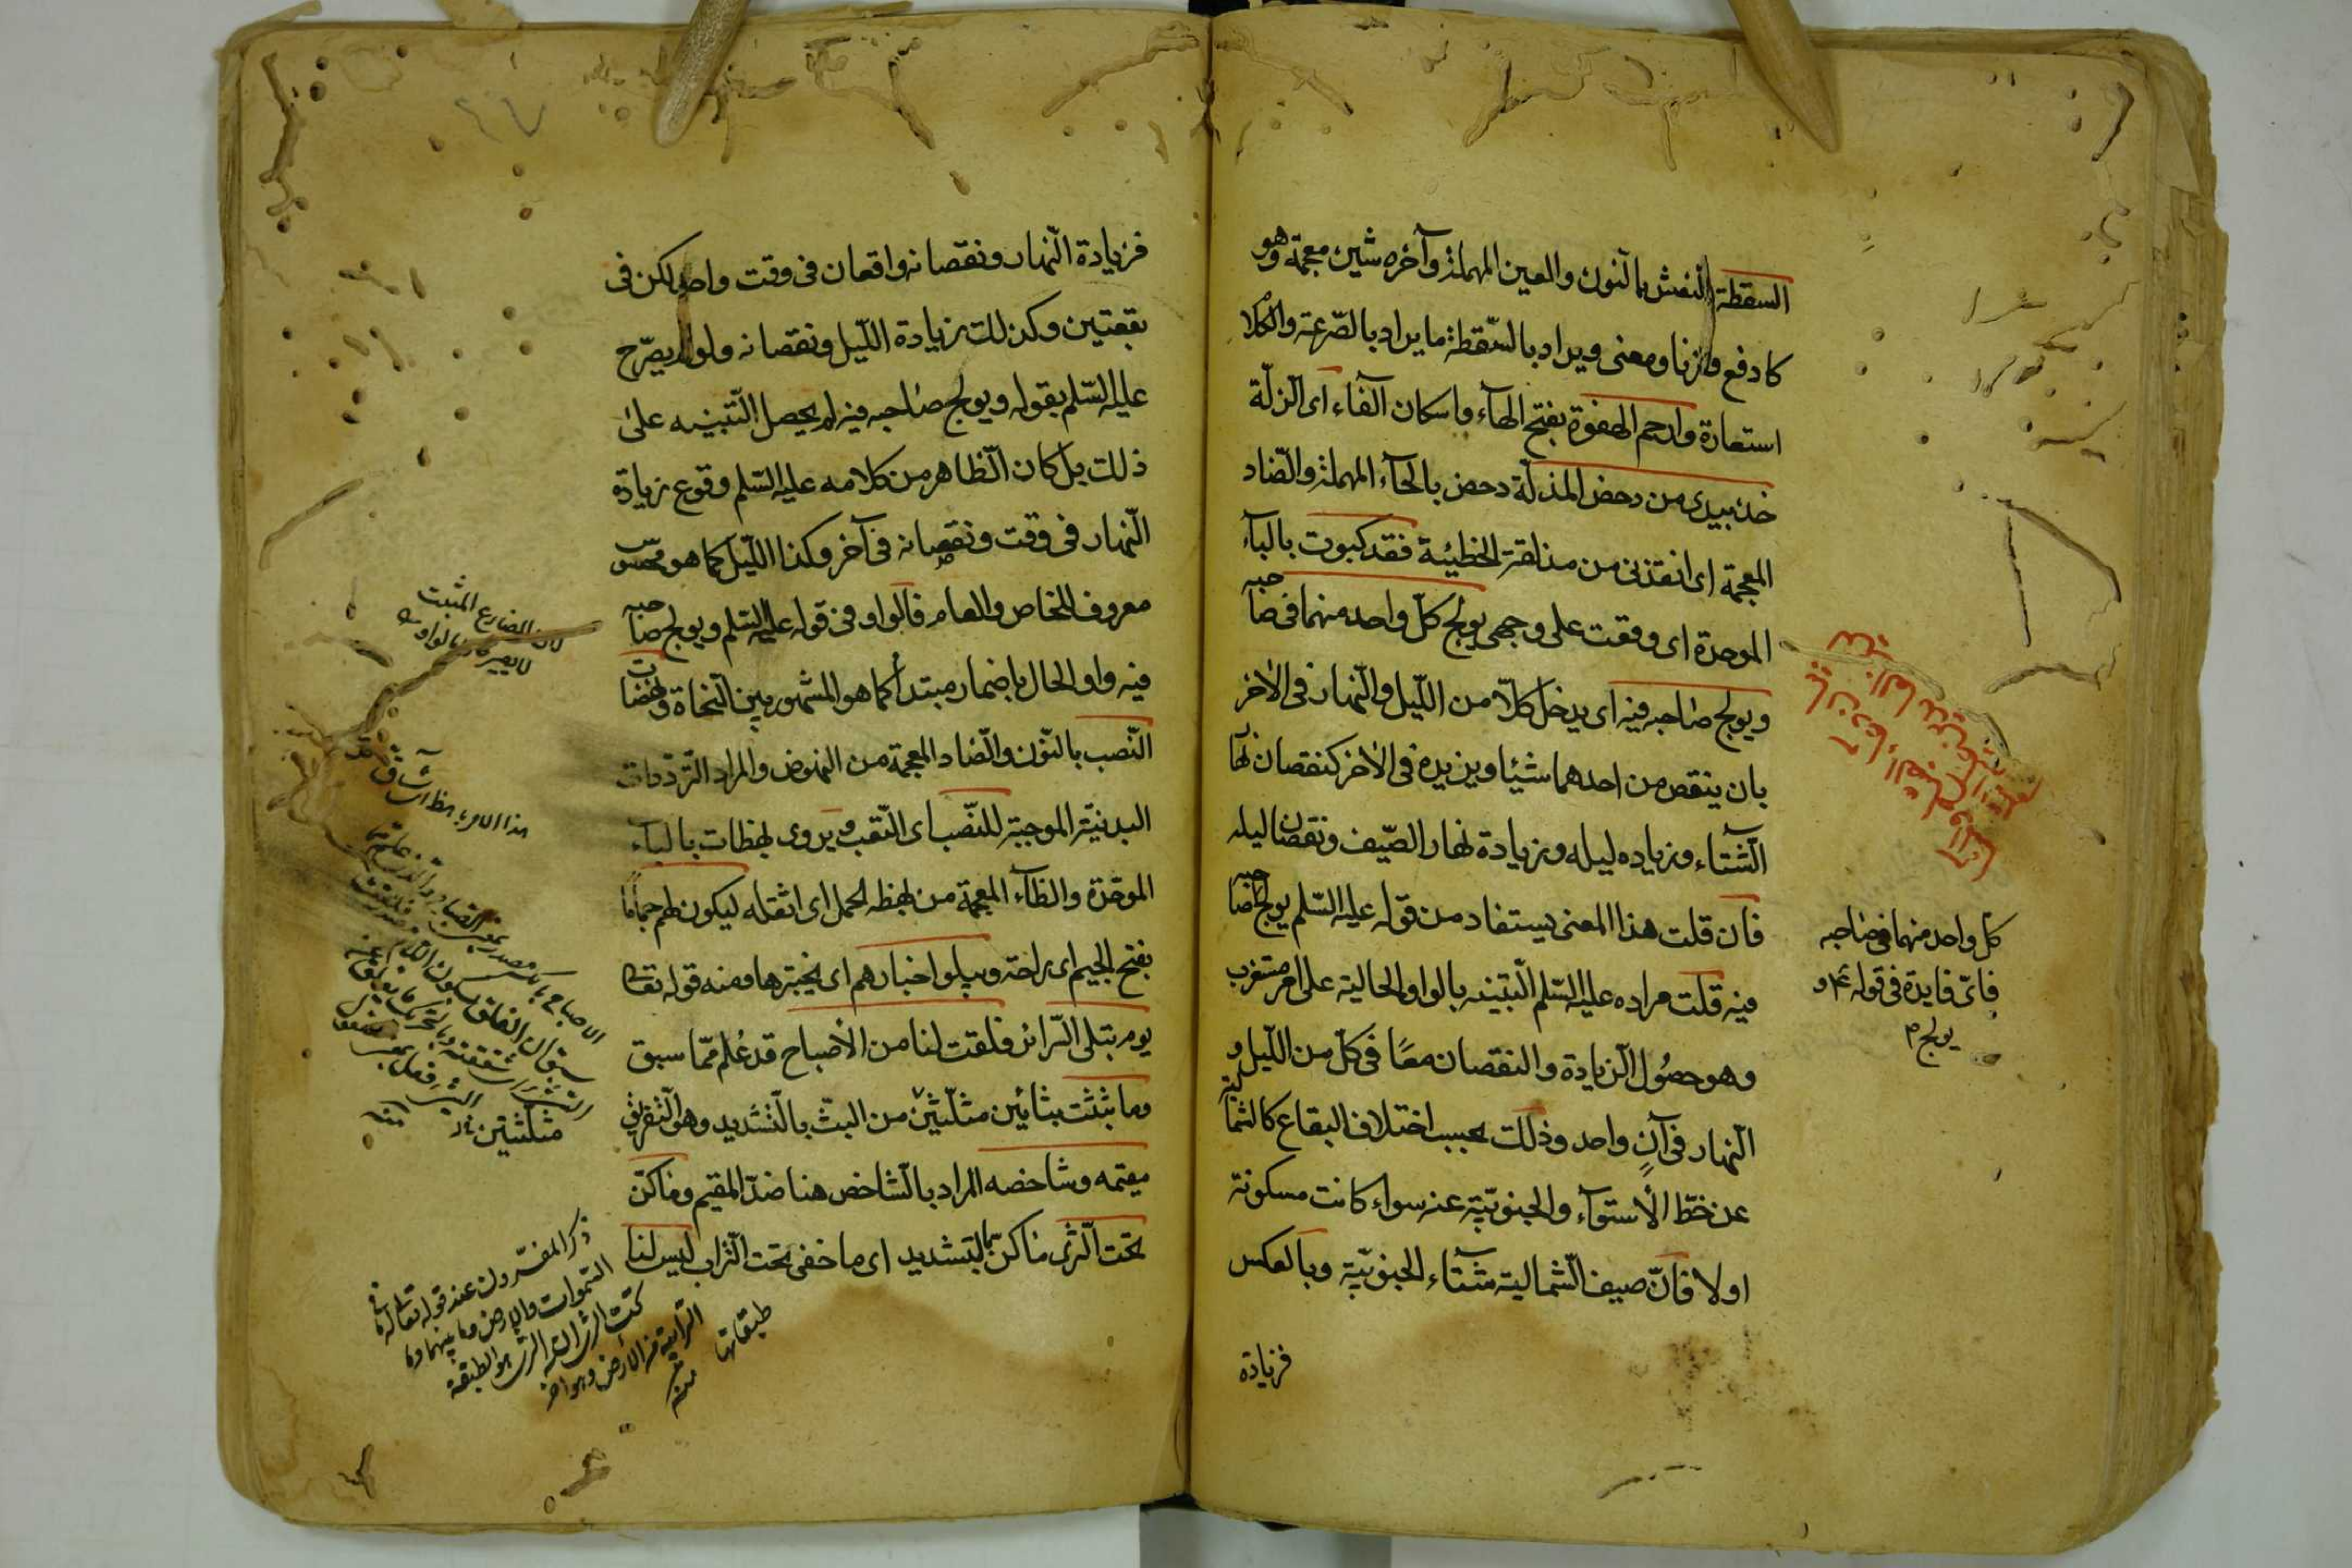 السقطة النعش بالنون والعين المهملة وآخره شين معجمة وهو
كادفع وزنا ومعنى ويراد بالسّقطة ما يراد بالصّرعة والكلا
استعارة وارحم الهفوة بفتح الهآء واسكان الفاء اى الزلّة
خذ بيدى من دحض المذلّة دحض بالحآء المهملة والضّاد
المعجمة اى انقذنى من مزلقة الخطيئة فقد كبوت بالبآء
الموحدة اى وقعت على وجهى يولج كلّ واحد منهما فى صاحبه
ويولج صاحبه فيه اى يدخل كلاّ من اللّيل والنّهار فى الاخر
بان ينقص من احدهما شيئا ويزيده فى الاخر كنقصان نهار
الشّتاء وزياده ليله وزيادة نهار الصّيف ونقصان ليله
فان قلت هذا المعنى يستفاد من قوله عليه السّلم يولج
كل واحد منهما فى صاحبه
فاىّ فايدة فى قوله ع و
يولج
صاحبه
فيه قلت مراده عليه السّلم التّنبيه بالواو الحالية على امر مستغرب
وهو حصُول الزيادة والنقصان معًا فى كلّ من اللّيل و
النّهار فى آنٍ واحد وذلك بحسب اختلاف البقاع كالشمالية
عن خطّ الاستوآء والجنوبيّة عنه سواء كانت مسكونة
اولا فانّ صيف الشمالية شتآء الجنوبيّة وبالعكس
فزيادة
فزيادة النّهار ونقصانه واقعان فى وقت واحد لكن فى
بقعتين وكذلك زيادة اللّيل ونقصانه ولو لم يصرّح
عليه السّلم بقوله ويولج صاحبه فيه لم يحصل التّنبيه على
ذلك بل كان الظاهر من كلامه عليه السّلم وقوع زيادة
النّهار فى وقت ونقصانه فى آخر وكذا اللّيل كما هو محسوس
معروف للخاص والعام فالواو فى قوله عليه السّلم ويولج صاحبه
فيه واو الحال باضمار مبتدأ كما هو المشهور بين النّحاة ونهضات
النّصب بالنّون والضّاد المعجمة من النهوض والمراد التّردّدات
البدنيّة الموجبة للنّصب اى التّعب ويروى بهظات بالبآء
الموحّدة والظآء المعجمة من بهظه الحمل اى اثقله ليكون لهم جماما
بفتح الجيم اى راحة ويبلو اخبارهم اى يختبرها ومنه قوله تعالى
يوم تبلى السّرائر فلقت لنا من الأصباح قد عُلم ممّا سبق
وما بثثت بثائين مثلّثتين من البثّ بالتّشديد وهو التّفريق
مقيمه وشاخصه المراد بالشاخص هنا ضدّ المقيم وما كنّ
تحت الثرى ما كنّ بالتشديد اى ما خفى تحت التّراب ليس لنا
لان المضارع المثبت
ذكر المفسّرون عند قوله تعالى له ما فى
السّموات والارض وما بينهما وما
تحت الثرى ان الثرى هو الطبقة
التّرابية من الأرض وهو آخر
طبقاتها
منه